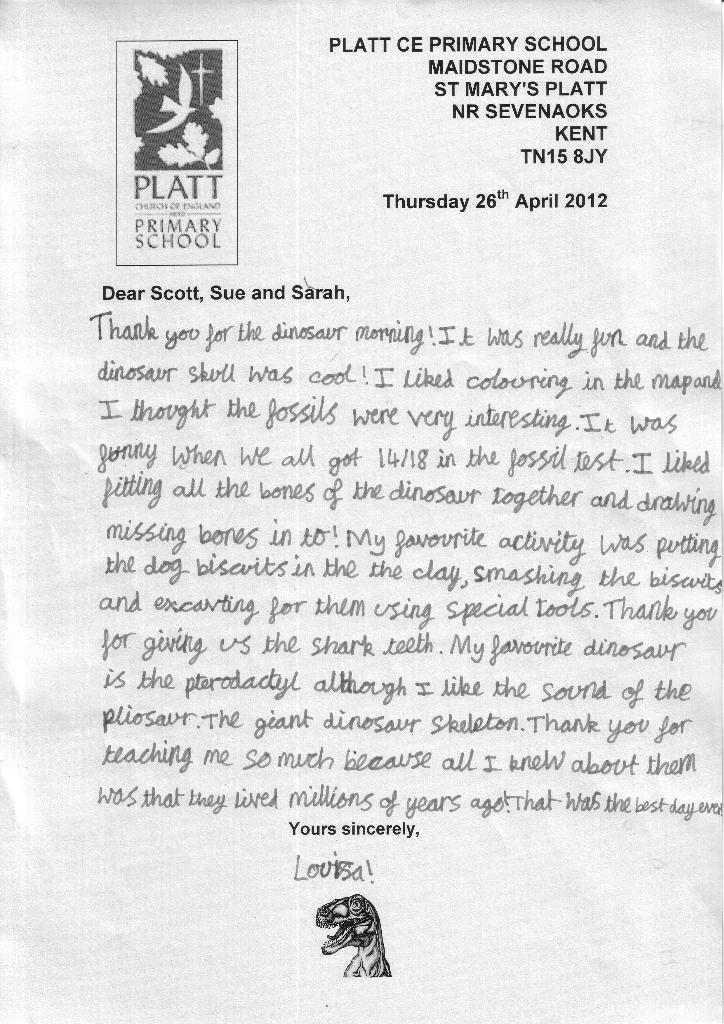 PLATT
CHURCH OF ENGLAND
PRIMARY
SCHOOL
PLATT CE PRIMARY SCHOOL
MAIDSTONE ROAD
ST MARY'S PLATT
NR SEVENAOKS
KENT
TN15 8JY
Thursday 26th April 2012
Dear Scott, Sue and Sarah,
Thank you for the dinosaur morning! It was really fun and the
dinosaur skull was cool! I liked colouring in the map and
I thought the fossils were very interesting. It was
funny when we all got 14/18 in the fossil test. I liked
fitting all the bones of the dinosaur together and drawing
missing bones in to! My favourite activity was putting
the dog biscuits in the the clay, smashing the biscuits
and excavting for them using special tools. Thank you
for giving us the shark teeth. My favourite dinosaur
is the pterodactyl although I like the sound of the
pliosaur. The giant dinosaur skeleton. Thank you for
teaching me so much because all I knew about them
was that they lived millions of years ago! That was the best day ever
Yours sincerely,
Louisa!